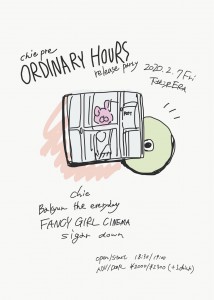 chie pre
ORDINARY HOURS
release party
2020.2.7 Fri
chie
Bakyun the everyday
FANCY GIRL CINEMA
sigar down
open/start 18:30/19:00
ADV/DOOR ¥2000/¥2500 (+1drink)